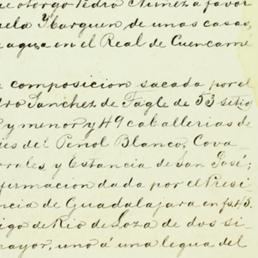 ue otorgó Pedro Nuñez a favor
uela Ybarguen de unas casas
agua en el Real de Cuencamé
e composicion sacada por el
dro Sanchez de Tagle de 53 sitio
y menor y 49 caballerias de
es del Peñol Blanco, Cova
rrales y Estancia de San José;
firmacion dada por el Presi
encia de Guadalajara en
igo de Rio de Loza de dos si
mayor, uno á una legua del